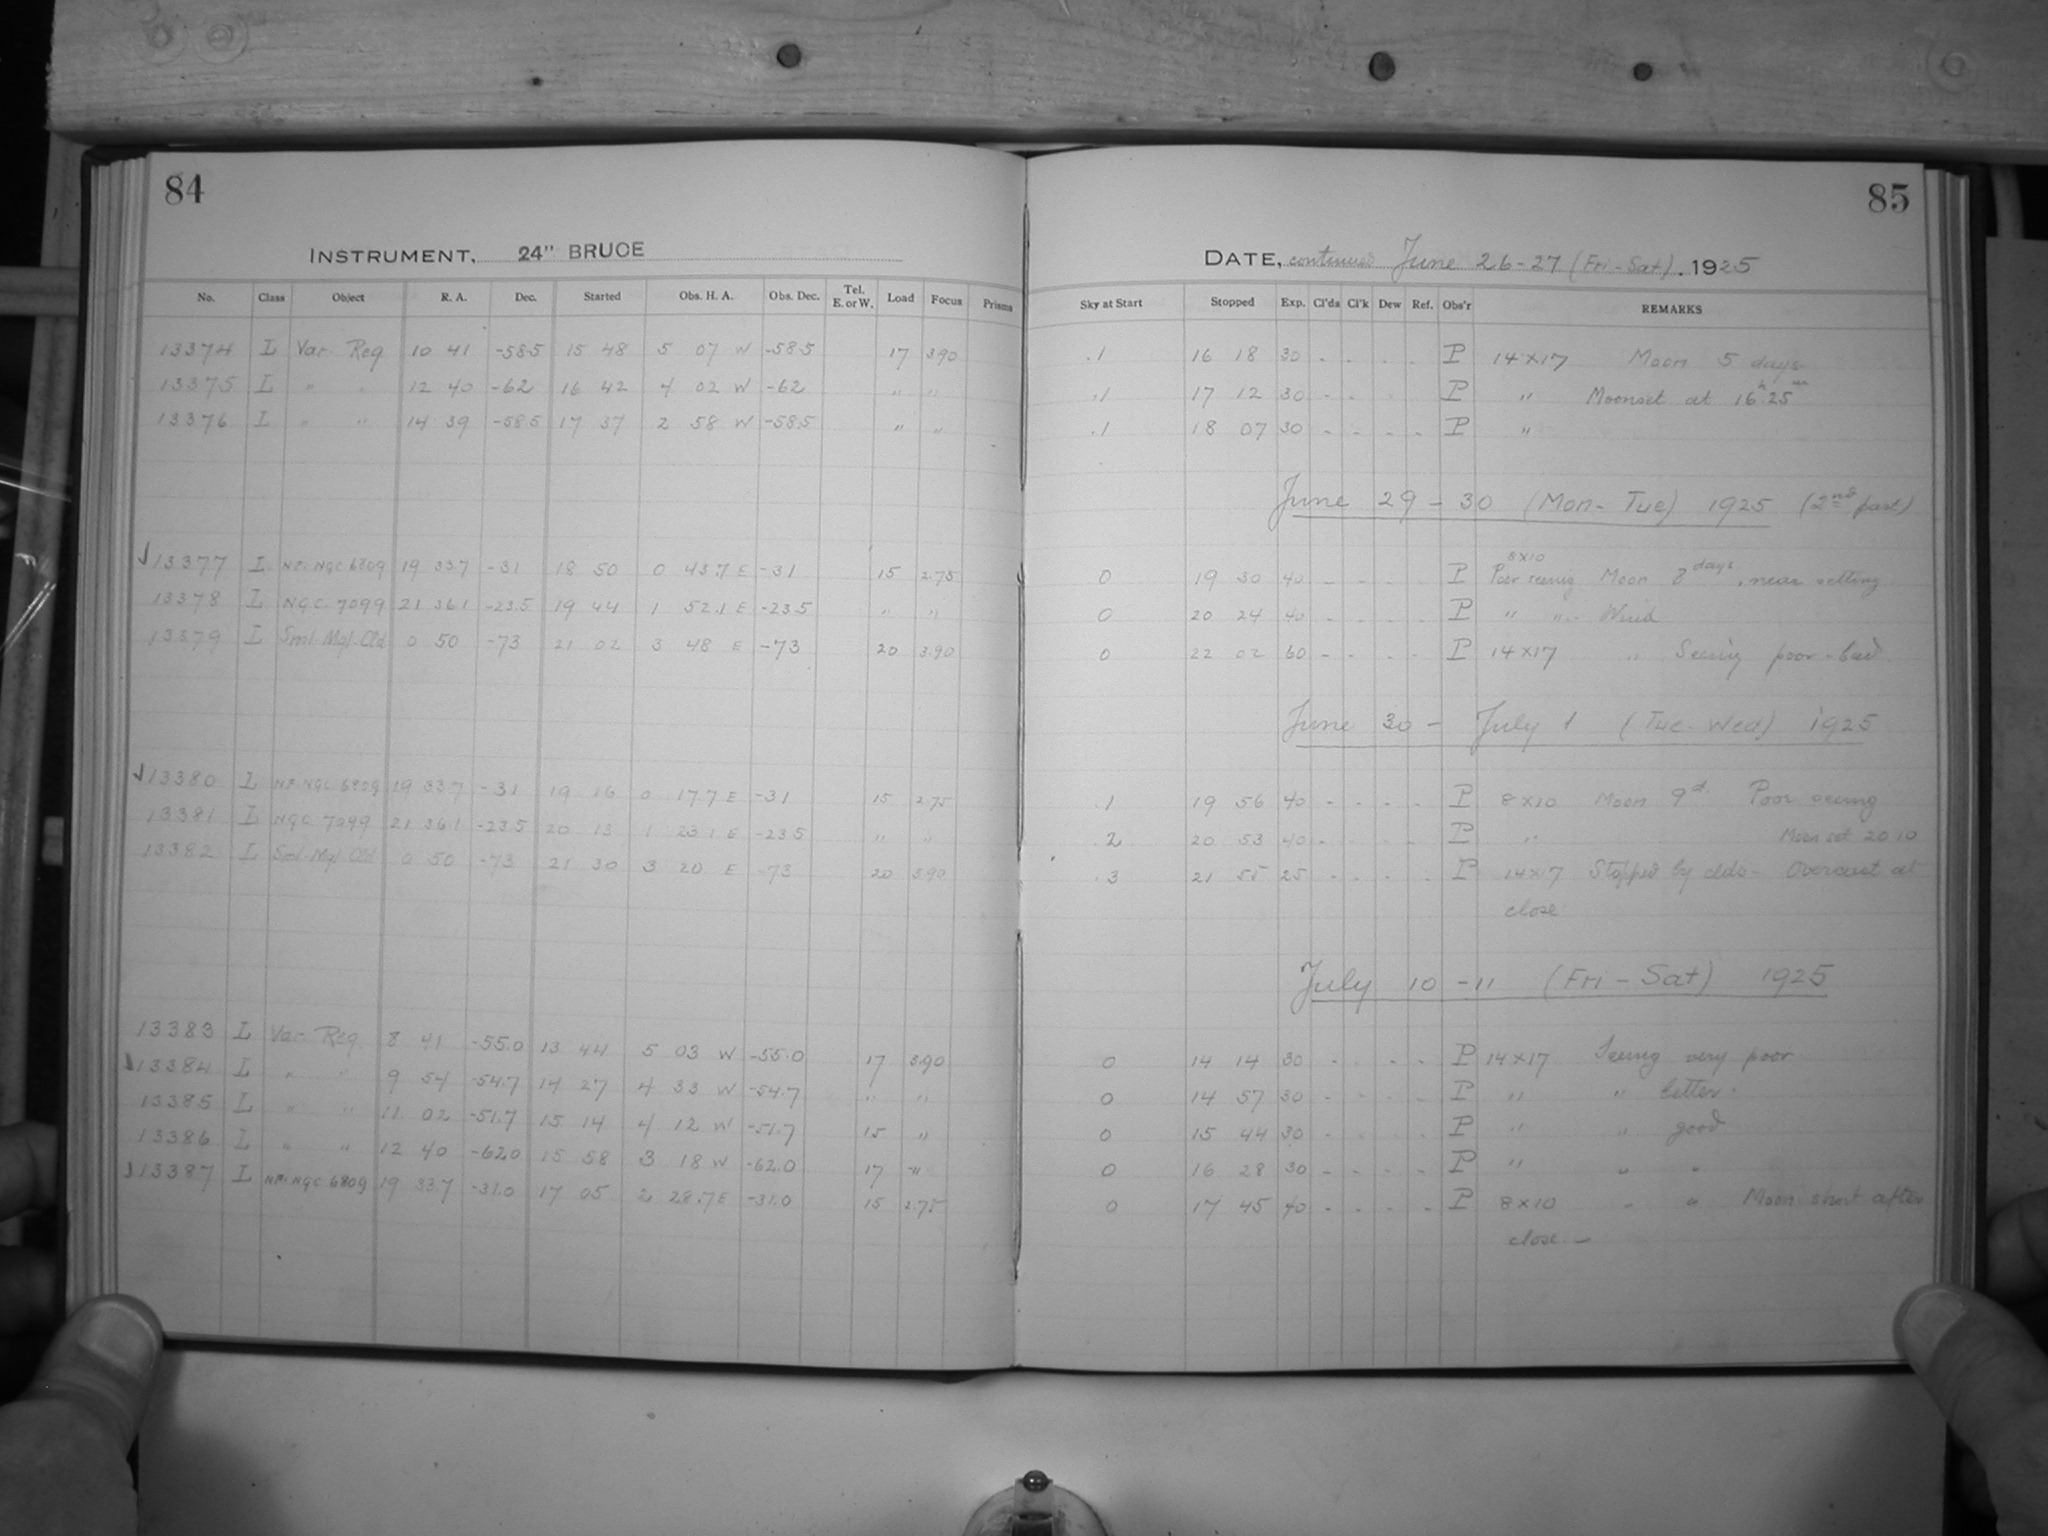 84
INSTRUMENT, 24" BRUCE
No. Class Object R. A. Dec. Started Obs. H. A. Obs. Dec. Tel. E. or W. Load Focus Prisms
13374 L Var. Reg 10 41 -58.5 15 48 5 07 W -58.5 17 3.90
13375 L " " 12 40 -62 16 42 4 02 W -62 " "
13376 L " " 14 39 -58.5 17 37 2 58 W -58.5 " "
✓13377 L NP. NGC 6809 19 33.7 -31 18 50 0 43.7 E -31 15 2.75
13378 L NGC 7099 21 36.1 -23.5 19 44 1 52.1 E -23.5 " "
13379 L Sml. Mgl. Cld 0 50 -73 21 02 3 48 E -73 20 3.90
✓13380 L NP. NGC 6809 19 33.7 -31 19 16 0 17.7 E -31 15 2.75
13381 L NGC 7099 21 36.1 -23.5 20 13 1 23.1 E -23.5 " "
13382 L Sml. Mgl. Cld 0 50 -73 21 30 3 20 E -73 20 3.90
13383 L Var. Reg. 8 41 -55.0 13 44 5 03 W -55.0 17 3.90
13384 L " " 9 54 -54.7 14 27 4 33 W -54.7 " "
13385 L " " 11 02 -51.7 15 14 4 12 W -51.7 15 "
13386 L " " 12 40 -62.0 15 58 3 18 W -62.0 17 "
13387 L NP. NGC 6809 19 33.7 -31.0 17 05 2 28.7 E -31.0 15 2.75
85
DATE, continued June 26-27 (Fri-Sat). 1925
Sky at Start Stopped Exp. Cl'ds Cl'k Dew Ref. Obs'r REMARKS
.1 16 18 30 - - - - P 14x17 Moon 5 days
.1 17 12 30 - - - - P " Moonset at 16h 25m
.1 18 07 30 - - - - P "
June 29-30 (Mon-Tue) 1925 (2nd part)
8x10
0 19 30 40 - - - - P Poor seeing Moon 8 days, near setting
0 20 24 40 - - - - P " " Wind
0 22 02 60 - - - - P 14x17 " Seeing poor-bad.
June 30 - July 1 (Tue-Wed) 1925
.1 19 56 40 - - - - P 8x10 Moon 9d. Poor seeing
.2 20 53 40 - - - - P " Moon set 20 10
.3 21 55 25 - - - - P 14x17 Stopped by clds - Overcast at
close
July 10-11 (Fri-Sat) 1925
0 14 14 30 - - - - P 14x17 Seeing very poor
0 14 57 30 - - - - P " " better.
0 15 44 30 - - - - P " " good
0 16 28 30 - - - - P " " "
0 17 45 40 - - - - P 8x10 " " Moon short after
close -